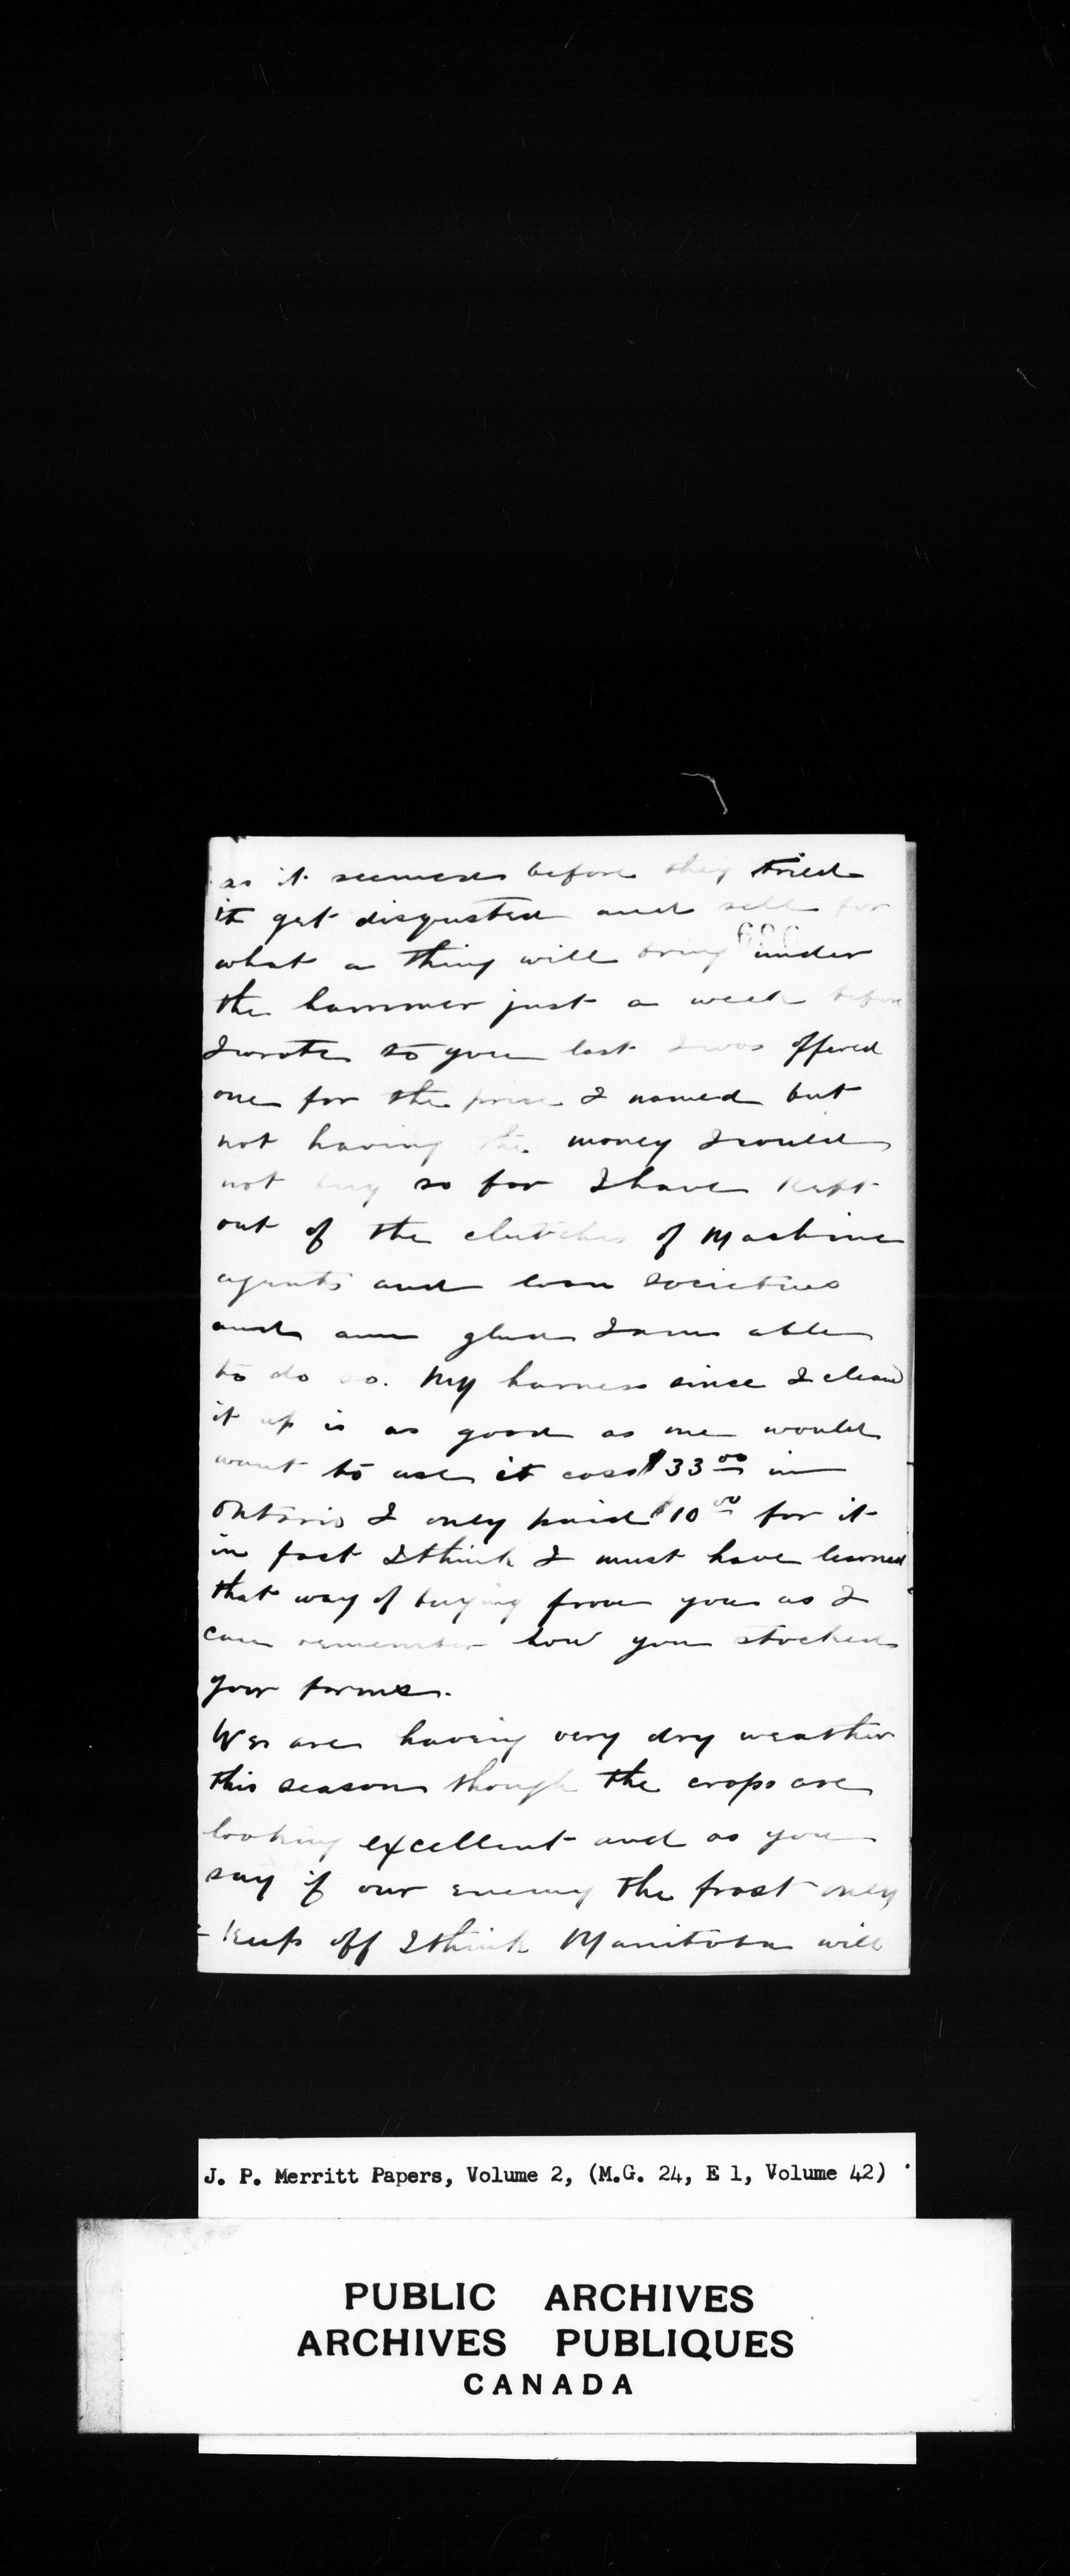 as it seemed before they tried
it get disgusted and sell for
what a thing will bring under
the hammer just a week before
I wrote to you last I was offered
one for the price I named but
not having the money I could
not buy so far I have kept
out of the clutches of Machine
agents and loan societies
and am glad I am able
to do so. My harness since I clean
it up is as good as one would
want to use it cost $33 00 in
Ontario I only paid $10 00 for it
in fact I think I must have learned
that way of buying from you as I
can remember how you stocked
your farms.
We are having very dry weather
this season though the crops are
looking excellent and as you
say if our enemy the frost only
- keep off I think Manitoba will
J. P. Merritt Papers, Volume 2, (M.G. 24, E 1, Volume 42)
PUBLIC ARCHIVES
ARCHIVES PUBLIQUES
CANADA